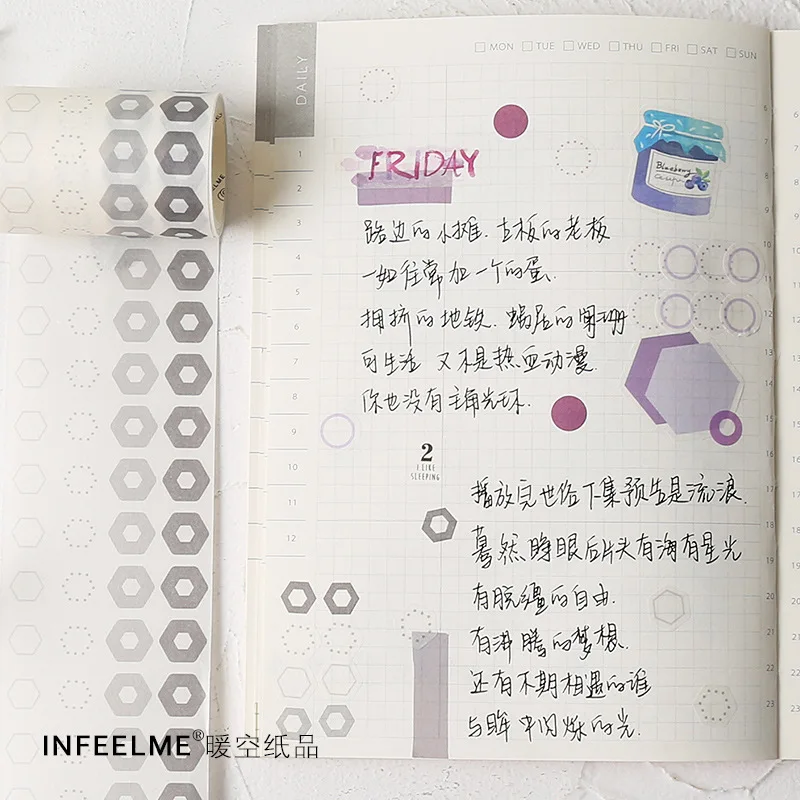 DAILY
MON TUE WED THU FRI SAT SUN
FRIDAY
Blueberry
路边的小摊.古板的老板
一如往常加一个的蛋.
拥挤的地铁.蜗居的
可生活 又不是热血动漫.
你也没有主角光环.
2
I LIKE
SLEEPING
播放完也俗下集预告是流浪.
蓦然睁眼后片头有海有星光
有脱缰的自由.
有沸腾的梦想.
还有不期相遇的谁
与眸中闪烁的光.
1
2
3
4
5
6
7
8
9
10
11
12
INFEELME®暖空纸品